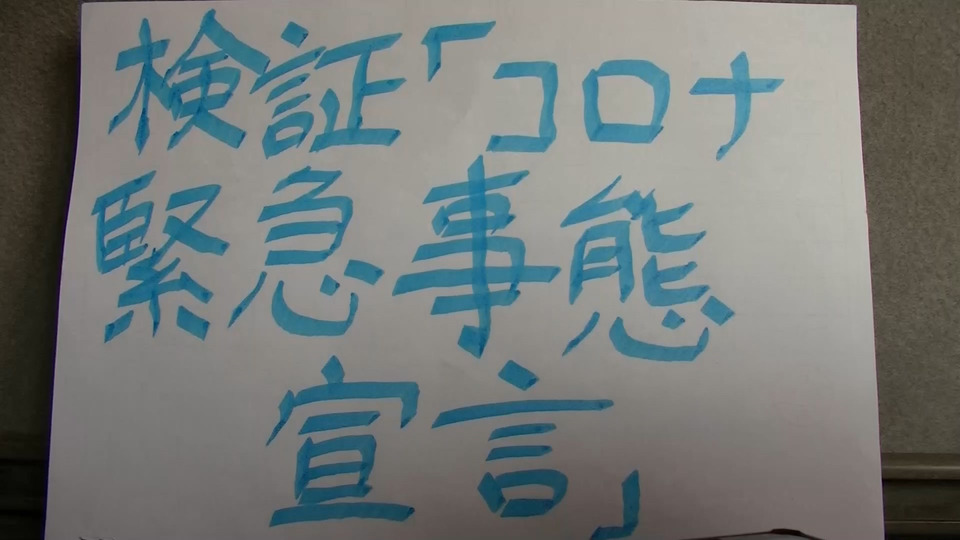 検証「コロナ
緊急事態
宣言」